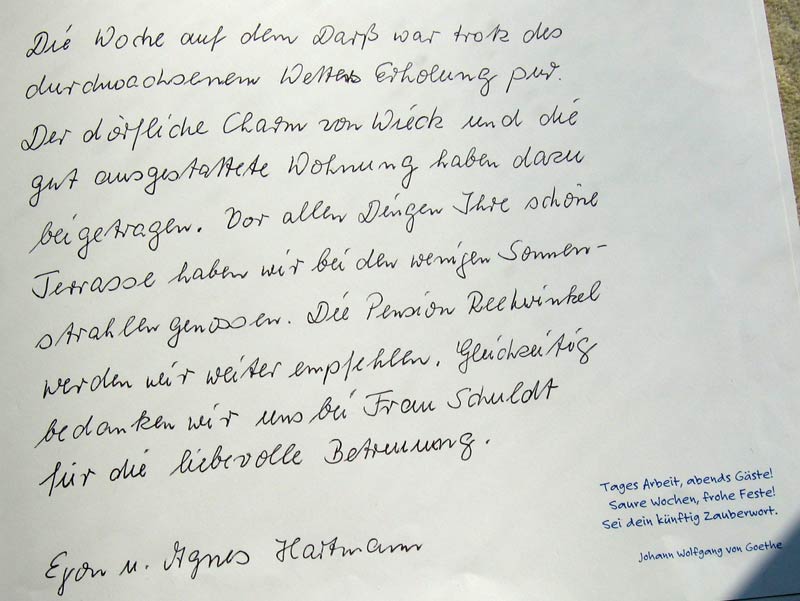 Die Woche auf dem Darß war trotz des
durchwachsenem Wetters Erholung pur.
Der dörfliche Charm von Wieck und die
gut ausgestattete Wohnung haben dazu
beigetragen. Vor allen Dingen Ihre schöne
Terrasse haben wir bei den wenigen Sonnen-
strahlen genossen. Die Pension Reetwinkel
werden wir weiter empfehlen. Gleichzeitig
bedanken wir uns bei Frau Schuldt
für die liebevolle Betreuung.
Egon u. Agnes Hartmann
Tages Arbeit, abends Gäste!
Saure Wochen, frohe Feste!
Sei dein künftig Zauberwort.
Johann Wolfgang von Goethe